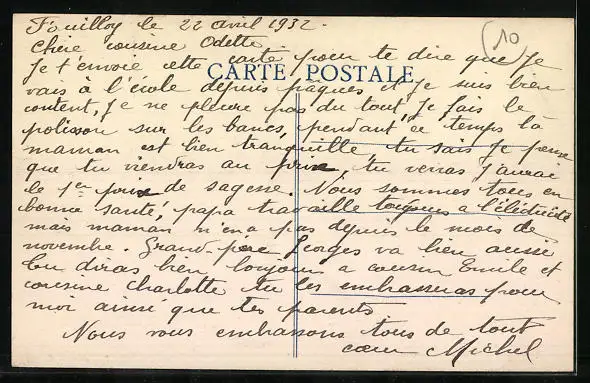 Fouilloy le 22 avril 1932.
10
Chère cousine Odette
Je t'envoie cette carte pour te dire que je
CARTE POSTALE
vais à l'école depuis paques et je suis bien
content, je ne pleure pas du tout, je fais le
polisson sur les bancs, pendant ce temps là
maman est bien tranquille, tu sais je pense
que tu viendras au prix, tu verras j'aurai
le 1er prix de sagesse. Nous sommes tous en
bonne santé, papa travaille toujours a l'électricité
mais maman n'en a pas depuis le mois de
novembre. Grand-père Georges va bien aussi
tu diras bien toujours a cousin Emile et
cousine Charlotte tu les embrasseras pour
moi ainsi que tes parents
Nous vous embrassons tous de tout
cœur Michel